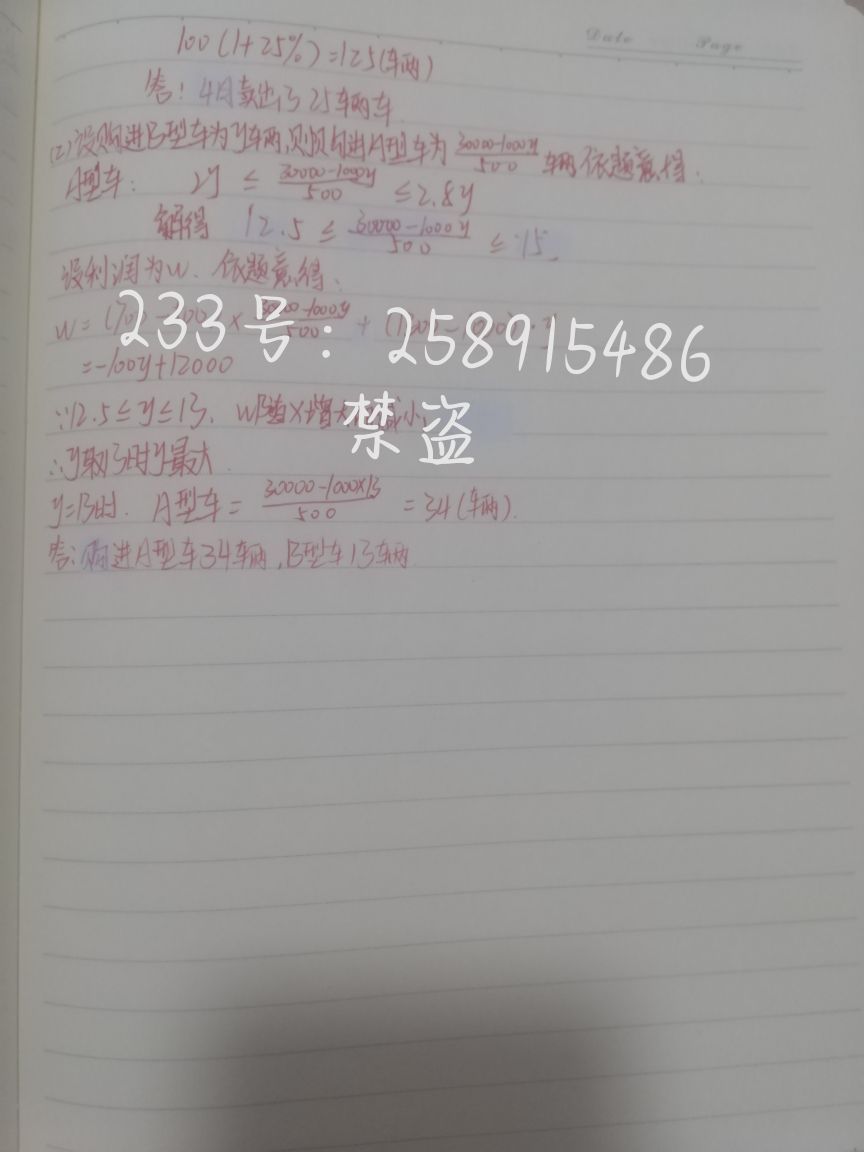 Date Page
100(1+25%)=125(车两)
答:4月卖出125车两车
(2)设购进B型车为y车两,则购进A型车为 30000-1000y/500 车两 依题意得:
A型车: 2y ≤ 30000-1000y/500 ≤2.8y
解得 12.5 ≤ 30000-1000y/500 ≤ 15.
设利润为w. 依题意得:
w= × 30000-1000y/500 +
=-100y+12000
233号: 258915486
∵12.5≤y≤15. w随x增大 减小.
禁盗
∴y取13时y最大.
y=13时. A型车= 30000-1000×13/500 =34(车两).
答:购进A型车34车两,B型车13车两